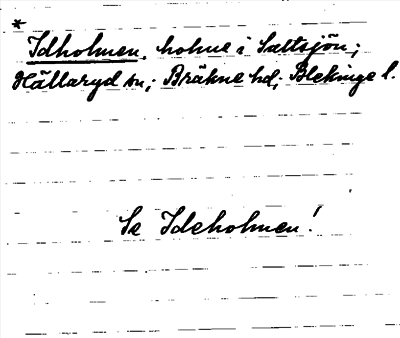 *
Idholmen, holme i Saltsjön;
Hällaryd sn; Bräkne hd; Blekinge l.
Se Ideholmen!